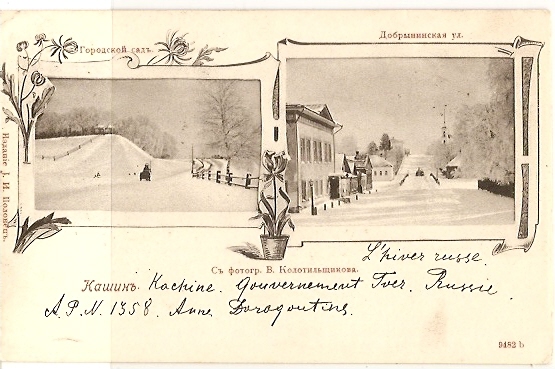 Городской садъ.
Добрынинская ул.
Изданіе І. И. Половецъ.
Съ фотогр. В. Колотильщикова.
L'hiver russe.
Кашинъ. Kachine. Gouvernement Tver. Russie.
A.P.N. 1358. Anne Dorogoutine.
9482 b